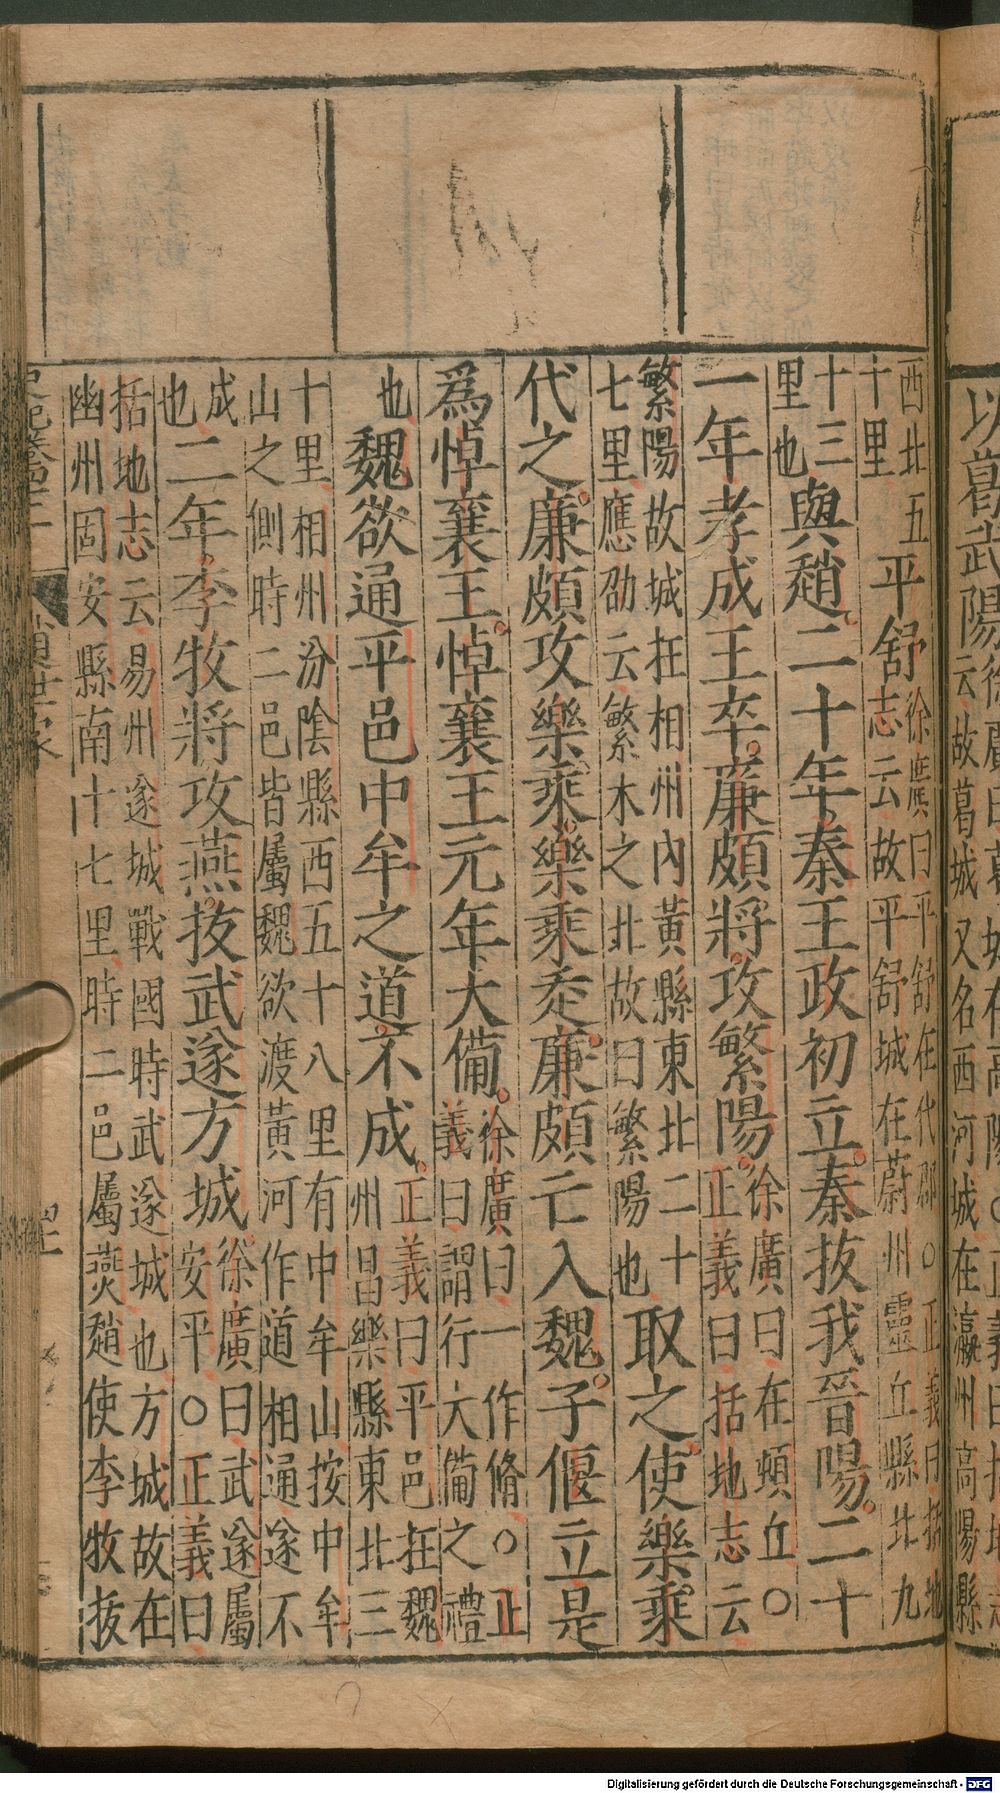 以葛武陽
徐廣曰葛城在高陽○正義曰括地志
云故葛城又名西河城在瀛州高陽縣
西北五
十里
平舒
徐廣曰平舒在代郡○正義曰括地
志云故平舒城在蔚州靈丘縣北九
十三
里也
與趙二十年秦王政初立秦拔我晉陽二十
一年孝成王卒廉頗將攻繁陽
徐廣曰在頓丘○
正義曰括地志云
繁陽故城在相州內黃縣東北二十
七里應劭云繁木之北故曰繁陽也
取之使樂乘
代之廉頗攻樂乘樂乘走廉頗亡入魏子偃立是
爲悼襄王悼襄王元年大備
徐廣曰一作脩○正
義曰謂行大備之禮
也
魏欲通平邑中牟之道不成
正義曰平邑在魏
州昌樂縣東北三
十里相州汾陰縣西五十八里有中牟山按中牟
山之側時二邑皆屬魏欲渡黃河作道相通遂不
成
也
二年李牧將攻燕拔武遂方城
徐廣曰武遂屬
安平○正義曰
括地志云易州遂城戰國時武遂城也方城故在
幽州固安縣南十七里時二邑屬燕趙使李牧拔
史記卷四十三
趙世家
Digitalisierung gefördert durch die Deutsche Forschungsgemeinschaft - DFG